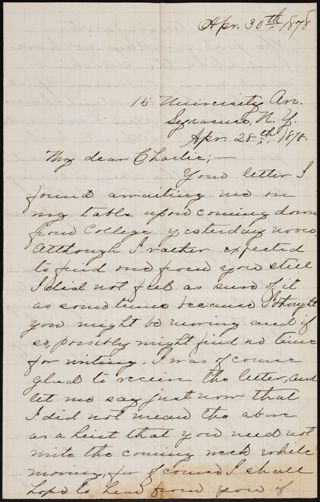 Apr. 30th 1878
15 University Av.
Syracuse, N.Y.
Apr. 28th 1878.
My dear Charlie;—
Your letter I
found awaiting me on
my table upon coming down
from College yesterday noon.
Although I rather expected
to find one from you still
I did not feel as sure of it
as some times because I thought
you might be moving and if
so, possibly might find no time
for writing. I was of course
glad to receive the letter, and
let me say just now that
I did not mean the above
as a hint that you need not
write the coming week while
moving, for of course I shall
hope to hear from you if